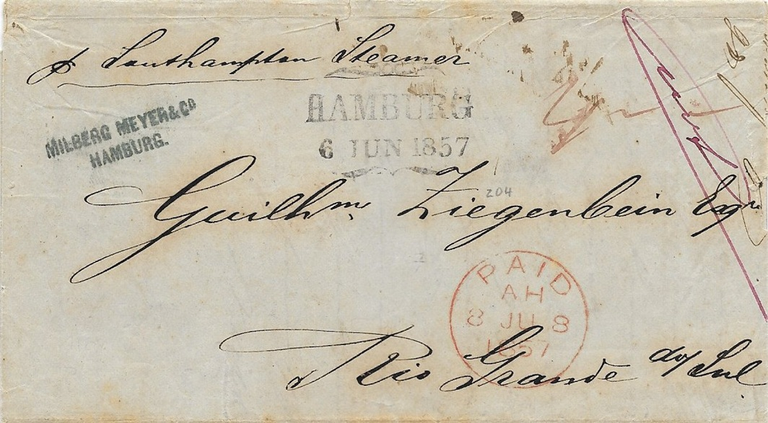 p Southampton Steamer
HAMBURG
6 JUN 1857
MILBERG MEYER & Co
HAMBURG.
204
Guilhme Ziegenbein Esqre
PAID
AH
8 JU 8
1857
Rio Grande do Sul